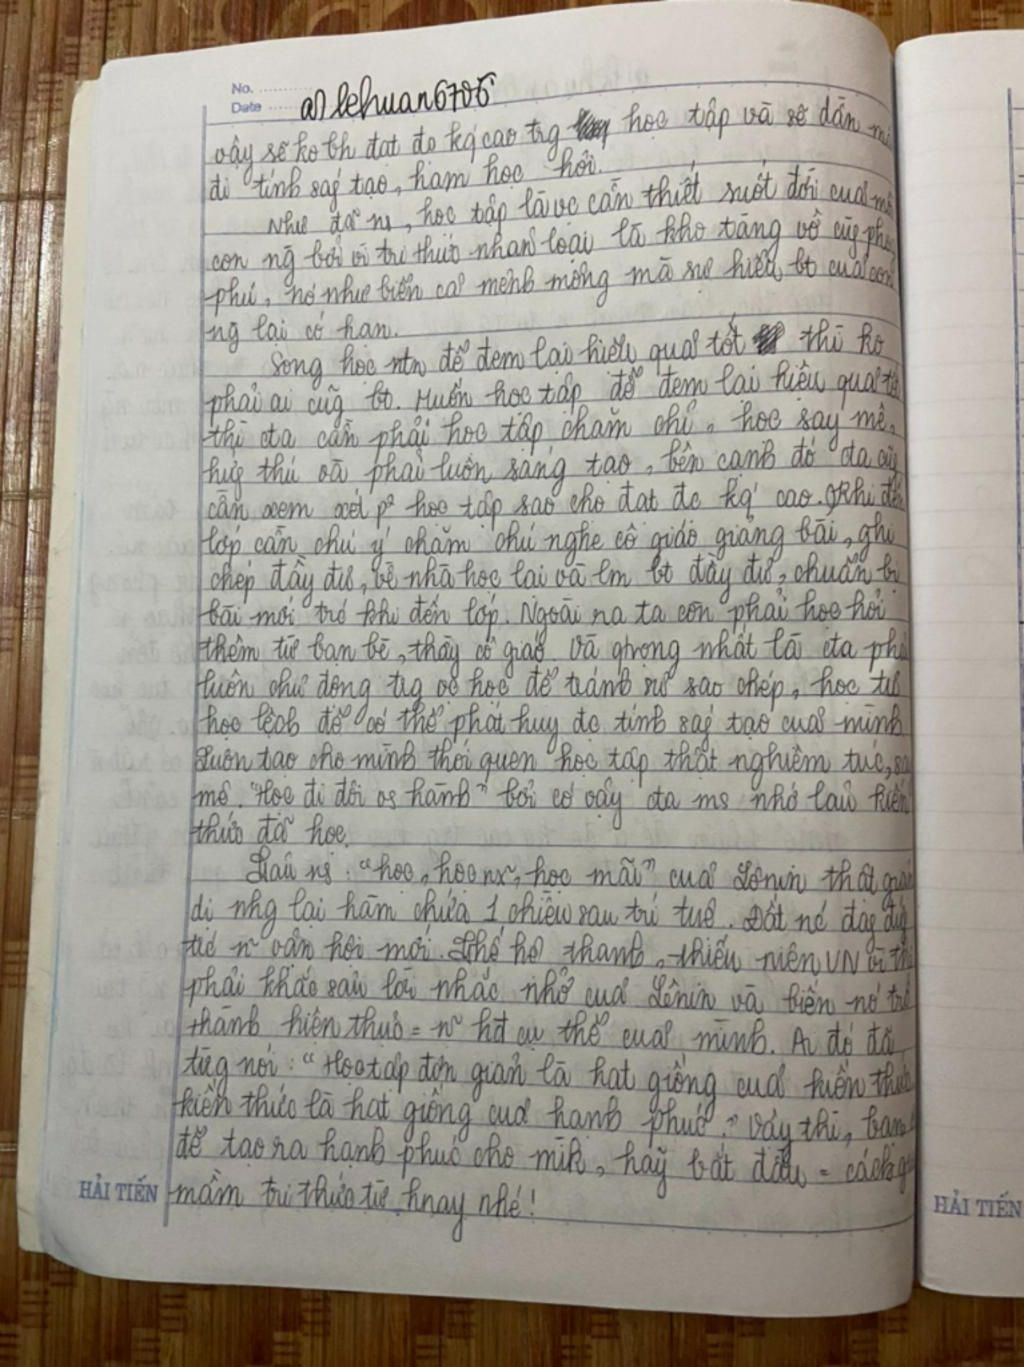 No.
Date @lehuan6706
vậy sẽ ko th đạt đc kq cao trg học tập và sẽ dần mất
đi tính ság tạo, ham học hỏi.
Như đã ns, học tập là vc cần thiết suốt đời của mỗi
con ng bởi vì tri thức nhân loại là kho tàng vô cùg phog
phú, nó như biển cả mênh mông mà sự hiểu bt của con
ng lại có hạn.
Song học ntn để đem lại hiệu quả tốt thì ko
phải ai cũg bt. Muốn học tập để đem lại hiệu quả tốt
thì cta cần phải học tập chăm chỉ, học say mê,
hứg thú và phải luôn sáng tạo, bên cạnh đó cta cũg
cần xem xét p² học tập sao cho đạt đc kq cao. Khi đến
lớp cần chú ý chăm chú nghe cô giáo giảng bài, ghi
chép đầy đủ, về nhà học lại và lm bt đầy đủ, chuẩn bị
bài mới trc khi đến lớp. Ngoài ra ta còn phải học hỏi
thêm từ bạn bè, thầy cô giáo. Và qtrọng nhất là cta phải
luôn chủ động trg vc học để tránh sự sao chép, học tủ
học lệch để có thể phát huy đc tính ság tạo của mình
Luôn tạo cho mình thói quen học tập thật nghiêm túc, say
mê. "Học đi đôi vs hành" bởi có vậy cta ms nhớ lâu kiến
thức đã học.
Câu ns: "học, học nx, học mãi" của Lênin thật giản
dị nhg lại hàm chứa 1 chiều sâu trí tuệ. Đất nc đag đứg
trc n~ vận hội mới. Thế hệ thanh, thiếu niên VN vì thế
phải khắc sâu lời nhắc nhở của Lênin và biến nó trở
thành hiện thực = n~ hđ cụ thể của mình. Ai đó đã
từg nói: "Học tập đơn giản là hạt giống của kiến thức
kiến thức là hạt giống của hạnh phúc." Vậy thì, bạn ơi
để tạo ra hạnh phúc cho mik, hãy bắt đầu = cách gieo
mầm tri thức từ hnay nhé!
HẢI TIẾN
HẢI TIẾN